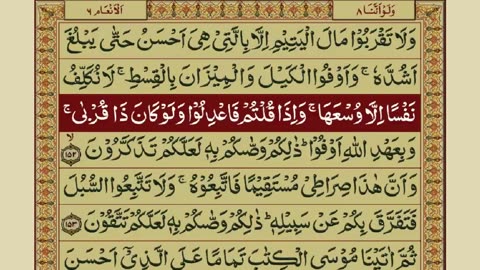 وَلَوْ اَنَّنَا ٨ اَلْاَنْعَام ٦
وَلَا تَقْرَبُوْا مَالَ الْيَتِيْمِ اِلَّا بِالَّتِيْ هِىَ اَحْسَنُ حَتّٰى يَبْلُغَ
اَشُدَّهٗ ۚ وَاَوْفُوا الْكَيْلَ وَالْمِيْزَانَ بِالْقِسْطِ ۚ لَا نُكَلِّفُ
نَفْسًا اِلَّا وُسْعَهَا ۚ وَاِذَا قُلْتُمْ فَاعْدِلُوْا وَلَوْ كَانَ ذَا قُرْبٰى ۚ
وَبِعَهْدِ اللّٰهِ اَوْفُوْا ؕ ذٰلِكُمْ وَصّٰىكُمْ بِهٖ لَعَلَّكُمْ تَذَكَّرُوْنَ ۙ ﴿١٥٢﴾
وَاَنَّ هٰذَا صِرَاطِيْ مُسْتَقِيْمًا فَاتَّبِعُوْهُ ۚ وَلَا تَتَّبِعُوا السُّبُلَ
فَتَفَرَّقَ بِكُمْ عَنْ سَبِيْلِهٖ ؕ ذٰلِكُمْ وَصّٰىكُمْ بِهٖ لَعَلَّكُمْ تَتَّقُوْنَ ﴿١٥٣﴾
ثُمَّ اٰتَيْنَا مُوْسَى الْكِتٰبَ تَمَامًا عَلَى الَّذِيْٓ اَحْسَنَ